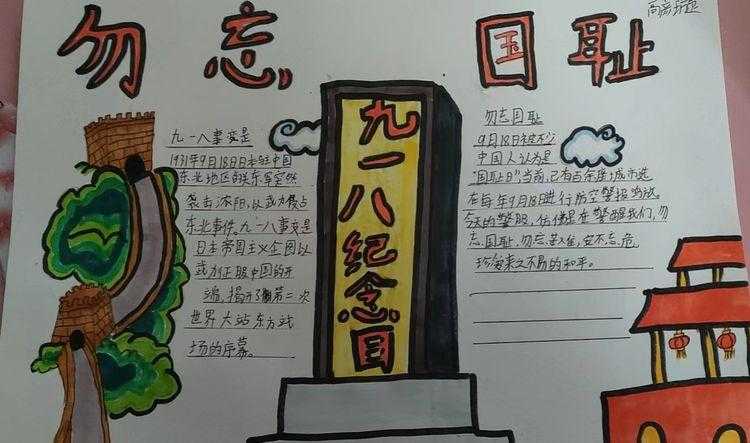 勿忘国耻
九一八纪念日
九一八事变是
1931年9月18日日本驻中国
东北地区的关东军突然
袭击沈阳，以武力侵占
东北事件。九一八事变是
日本帝国主义企图以
武力征服中国的开
端，揭开了第二次
世界大站东方战
场的序幕。
勿忘国耻
9月18日被不少
中国人认为是
"国耻日"，当前，已有占多座城市选
在每年9月18日进行防空警报鸣放。
今天的警报，仿佛是在警醒我们，勿
忘国耻，勿忘，安不忘危，
珍惜来之不易的和平。